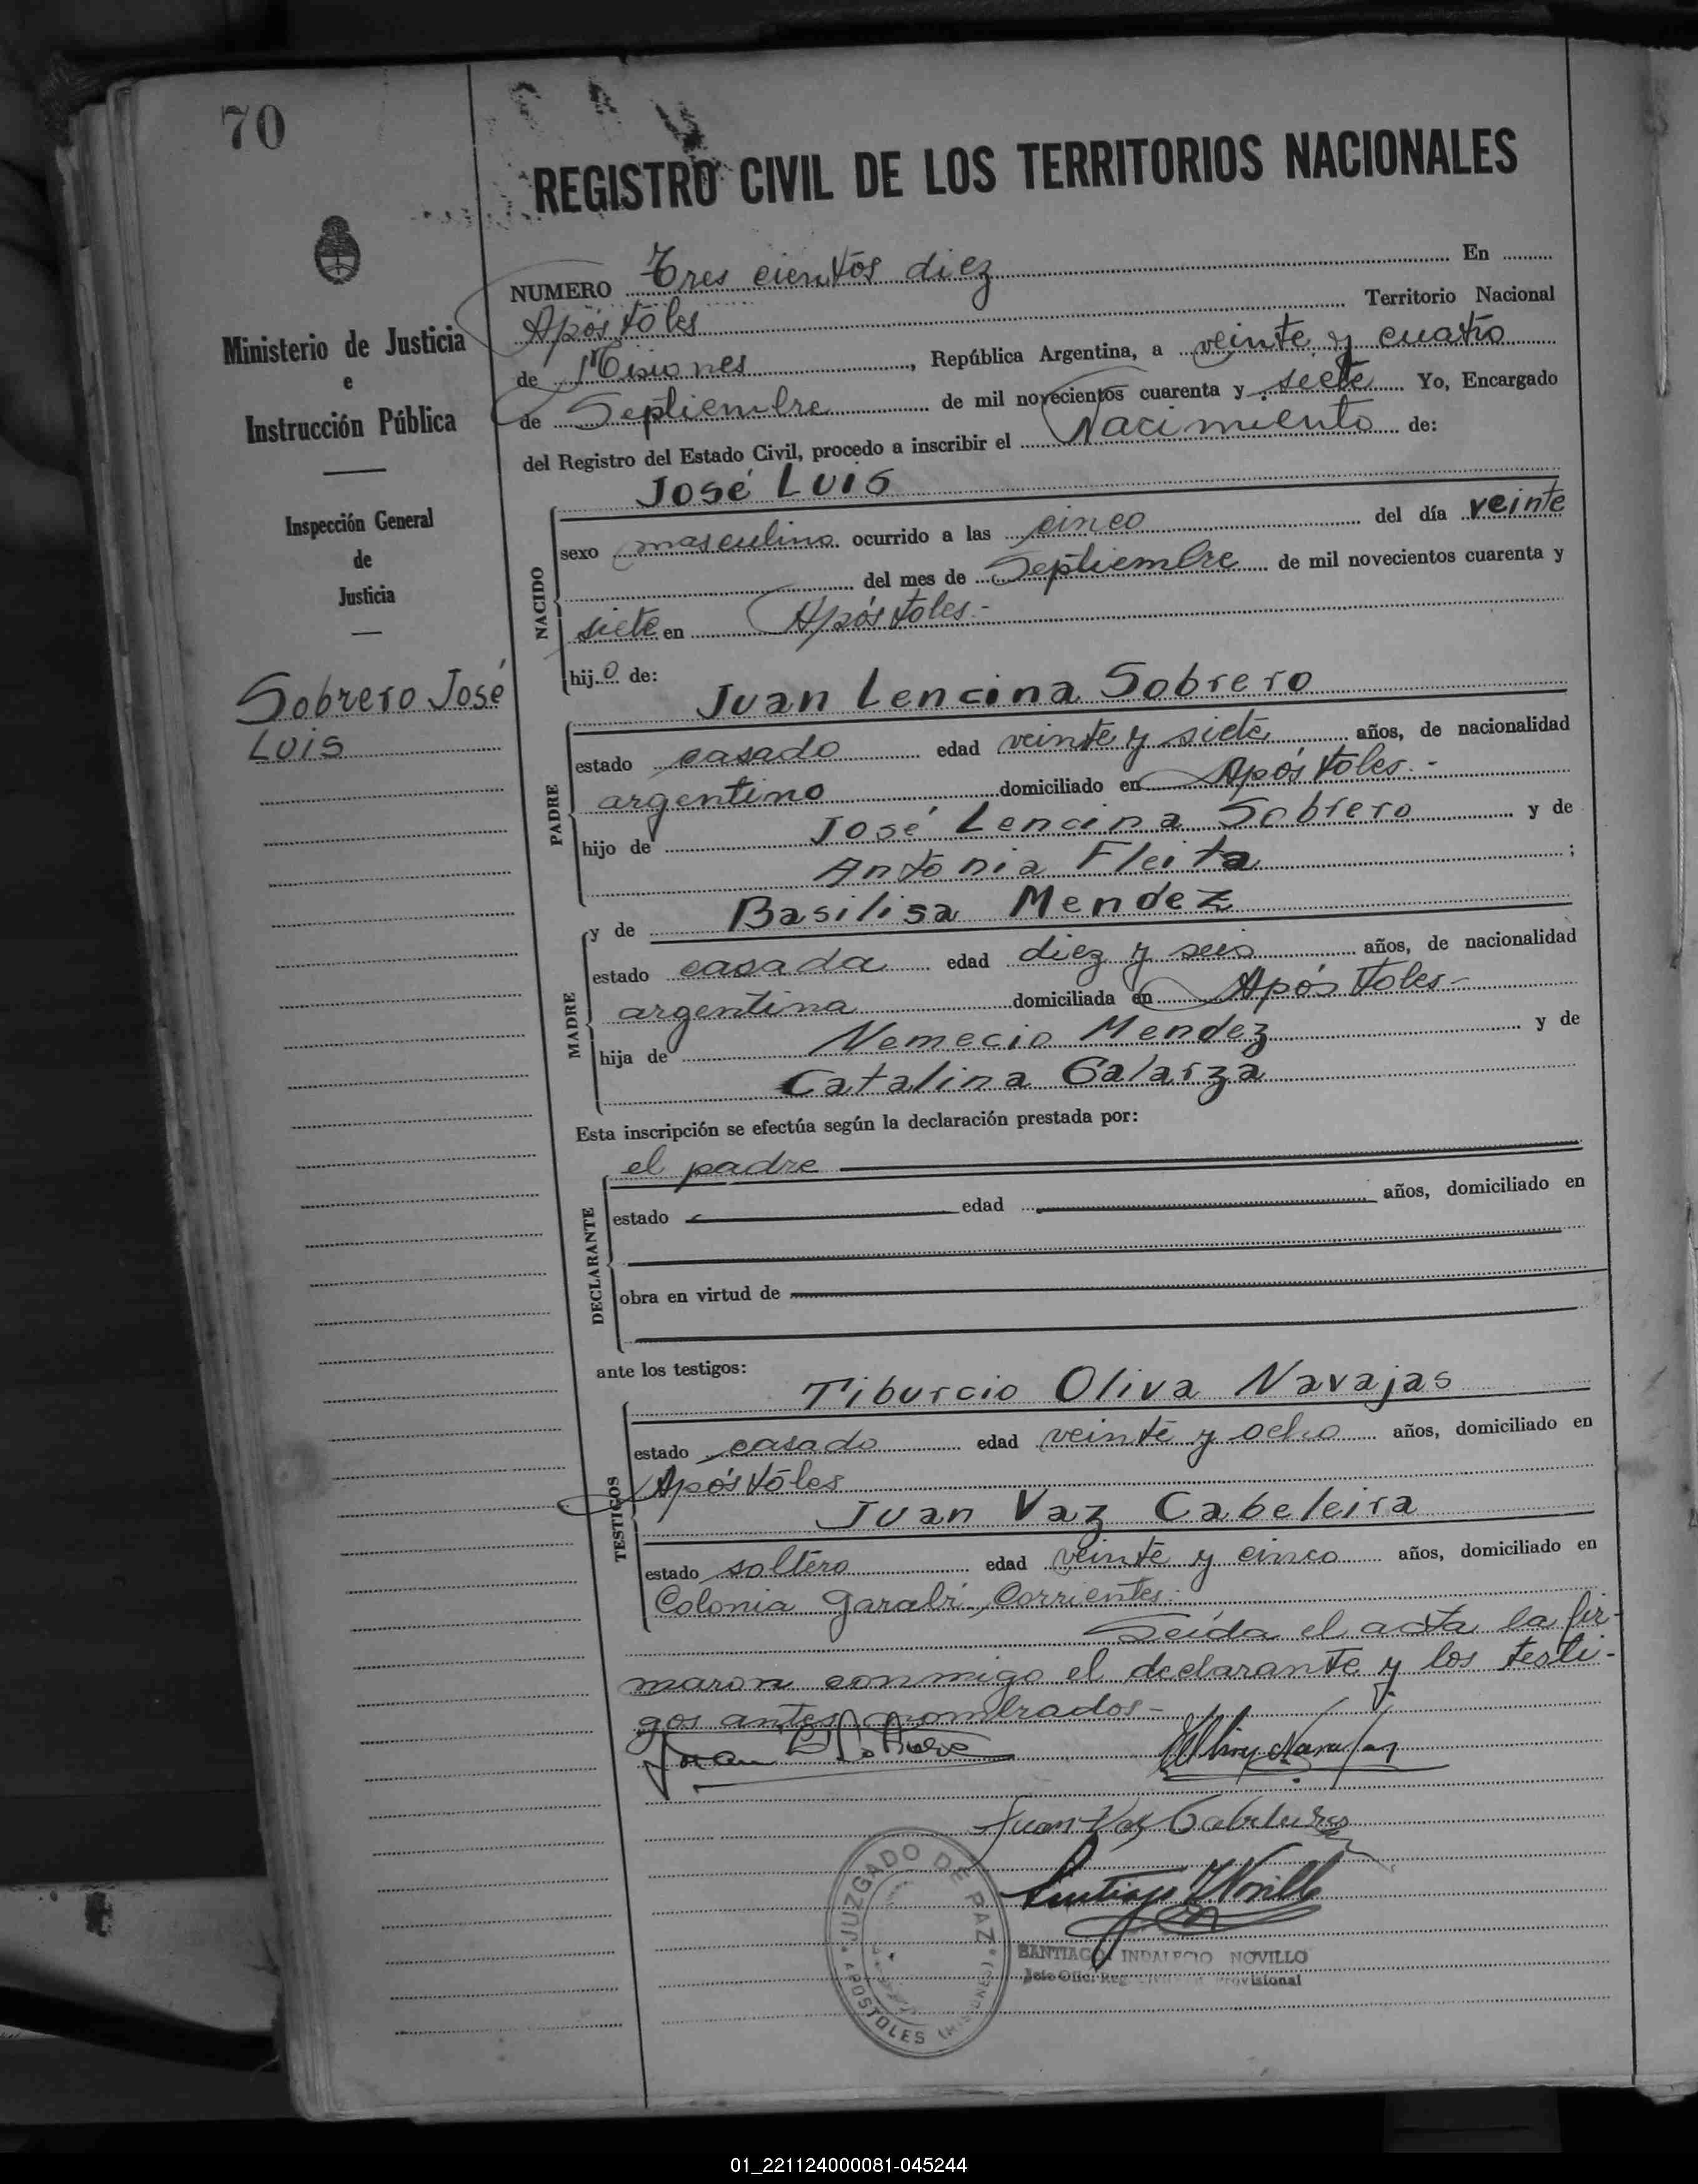 70
REGISTRO CIVIL DE LOS TERRITORIOS NACIONALES
Ministerio de Justicia
e
Instrucción Pública
Inspección General
de
Justicia
Sobrero José
Luis
NUMERO Tres cientos diez En
Apóstoles Territorio Nacional
de Misiones, República Argentina, a veinte y cuatro
de Septiembre de mil novecientos cuarenta y siete Yo, Encargado
del Registro del Estado Civil, procedo a inscribir el Nacimiento de:
José Luis
NACIDO
sexo masculino ocurrido a las cinco del día veinte
del mes de Septiembre de mil novecientos cuarenta y
siete en Apóstoles.-
hijo de:
Juan Lencina Sobrero
PADRE
estado casado edad veinte y siete años, de nacionalidad
argentino domiciliado en Apóstoles.-
hijo de José Lencina Sobrero y de
Antonia Fleita;
y de Basilisa Mendez
MADRE
estado casada edad diez y seis años, de nacionalidad
argentina domiciliada en Apóstoles-
hija de Nemecio Mendez y de
Catalina Galarza
Esta inscripción se efectúa según la declaración prestada por:
el padre
DECLARANTE
estado edad años, domiciliado en
obra en virtud de
ante los testigos:
Tiburcio Oliva Navajas
TESTIGOS
estado casado edad veinte y ocho años, domiciliado en
Apóstoles
Juan Vaz Cabeleira
estado soltero edad veinte y cinco años, domiciliado en
Colonia Garabí-Corrientes.
Leída el acta la fir-
maron conmigo el declarante y los testi-
gos antes nombrados-
Juan L. Sobrero
Juan Vaz Cabeleira
JUZGADO DE PAZ
APOSTOLES (MISIONES)
SANTIAGO INDALECIO NOVILLO
Jefe Ofic. Reg. Provisional
01_221124000081-045244